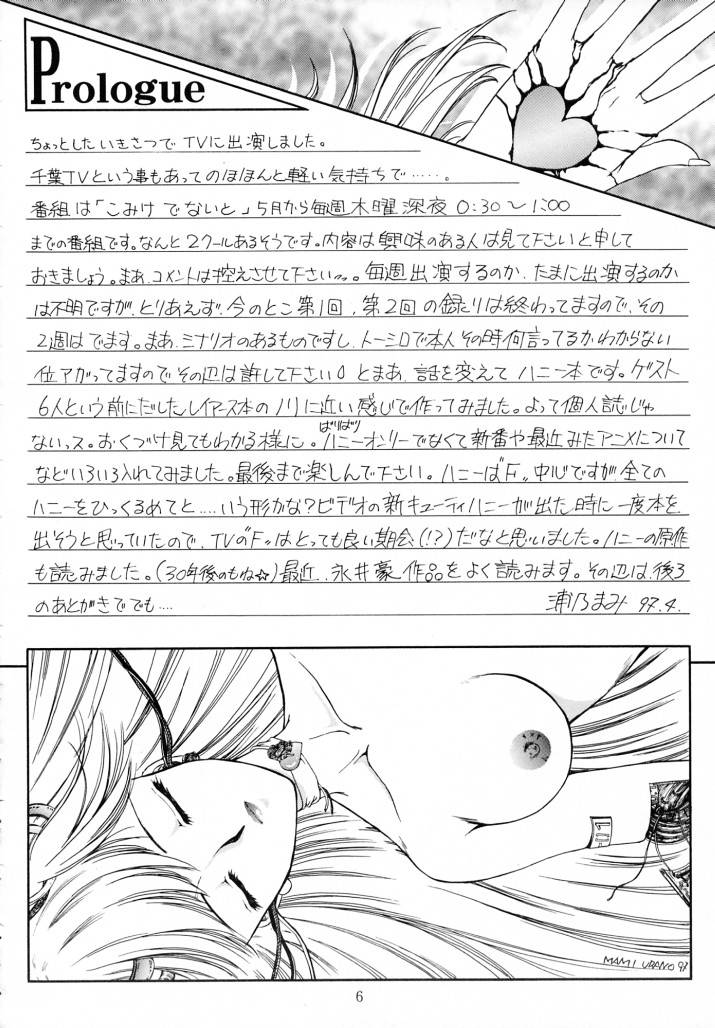 Prologue
ちょっとした いきさつで TVに出演しました。
千葉TVという事もあって のほほんと軽い気持ちで‥‥‥。
番組は「こみけ でないと」5月から毎週木曜深夜 0:30〜1:00
までの番組です。なんと2クールあるそうです。内容は興味のある人は見て下さいと申して
おきましょう。まあ、コメントは控えさせて下さい。毎週出演するのか、たまに出演するのか
は不明ですが、とりあえず、今のとこ第1回、第2回の録りは終わってますので、その
2週はでます。まあ、ミナリオのあるものですし、トーシロで本人その時何言ってるかわからない
位アガってますので その辺は許して下さい とまあ、話を変えて ハニー本です。ゲスト
6人という前にだしたレイアース本のノリに近い感じで作ってみました。よって個人誌じゃ
ないっス。おくづけ見てもわかる様に。ばりばりハニーオンリーでなくて新番や最近みたアニメについて
などいろいろ入れてみました。最後まで楽しんで下さい。ハニーは"F"中心ですが全ての
ハニーをひっくるめてと‥‥いう形かな?ビデオの新キューティハニーが出た時に一度本を
出そうと思っていたので、TVの"F"はとっても良い期会(!?)だなと思いました。ハニーの原作
も読みました。(30年後のもね☆)最近、永井豪作品をよく読みます。その辺は、後ろ
のあとがきででも‥‥
浦乃まみ 97.4.
MAMI URANO 97
6